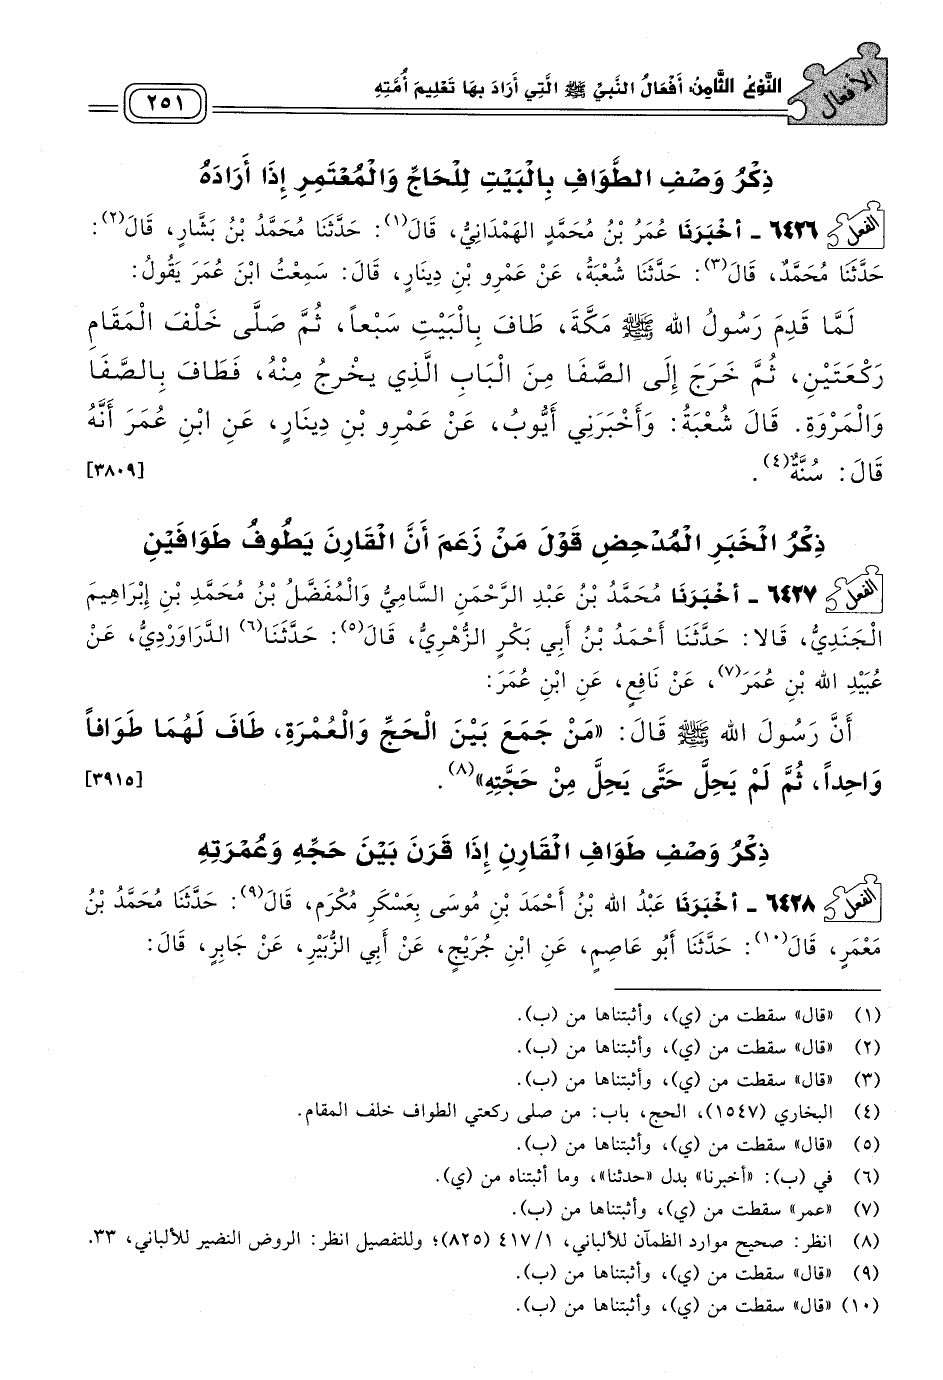 الأفعال
النَّوْعُ الثَّامِنُ: أَفْعَالُ النَّبِيِّ ﷺ الَّتِي أَرَادَ بِهَا تَعْلِيمَ أُمَّتِهِ
٢٥١
ذِكْرُ وَصْفِ الطَّوَافِ بِالْبَيْتِ لِلْحَاجِّ وَالْمُعْتَمِرِ إِذَا أَرَادَهُ
الفعل ٦٤٢٦ ـ أخْبَرَنَا عُمَرُ بْنُ مُحَمَّدٍ الهَمْدَانِيُّ، قَالَ(١): حَدَّثَنَا مُحَمَّدُ بْنُ بَشَّارٍ، قَالَ(٢):
حَدَّثَنَا مُحَمَّدٌ، قَالَ(٣): حَدَّثَنَا شُعْبَةُ، عَنْ عَمْرِو بْنِ دِينَارٍ، قَالَ: سَمِعْتُ ابْنَ عُمَرَ يَقُولُ:
لَمَّا قَدِمَ رَسُولُ الله ﷺ مَكَّةَ، طَافَ بِالْبَيْتِ سَبْعاً، ثُمَّ صَلَّى خَلْفَ الْمَقَامِ
رَكْعَتَيْنِ، ثُمَّ خَرَجَ إِلَى الصَّفَا مِنَ الْبَابِ الَّذِي يَخْرجُ مِنْهُ، فَطَافَ بِالصَّفَا
وَالْمَرْوَةِ. قَالَ شُعْبَةُ: وَأَخْبَرَنِي أَيُّوبُ، عَنْ عَمْرِو بْنِ دِينَارٍ، عَنِ ابْنِ عُمَرَ أَنَّهُ
قَالَ: سُنَّةٌ(٤). [٣٨٠٩]
ذِكْرُ الْخَبَرِ الْمُدْحِضِ قَوْلَ مَنْ زَعَمَ أَنَّ الْقَارِنَ يَطُوفُ طَوَافَيْنِ
الفعل ٦٤٢٧ ـ أخْبَرَنَا مُحَمَّدُ بْنُ عَبْدِ الرَّحْمَنِ السَّامِيُّ وَالْمُفَضَّلُ بْنُ مُحَمَّدِ بْنِ إِبْرَاهِيمَ
الْجَنَدِيُّ، قَالا: حَدَّثَنَا أَحْمَدُ بْنُ أَبِي بَكْرٍ الزُّهْرِيُّ، قَالَ(٥): حَدَّثَنَا(٦) الدَّرَاوَرْدِيُّ، عَنْ
عُبَيْدِ الله بْنِ عُمَرَ(٧)، عَنْ نَافِعٍ، عَنِ ابْنِ عُمَرَ:
أَنَّ رَسُولَ الله ﷺ قَالَ: «مَنْ جَمَعَ بَيْنَ الْحَجِّ وَالْعُمْرَةِ، طَافَ لَهُمَا طَوَافاً
وَاحِداً، ثُمَّ لَمْ يَحِلَّ حَتَّى يَحِلَّ مِنْ حَجَّتِهِ»(٨). [٣٩١٥]
ذِكْرُ وَصْفِ طَوَافِ الْقَارِنِ إِذَا قَرَنَ بَيْنَ حَجِّهِ وَعُمْرَتِهِ
الفعل ٦٤٢٨ ـ أخْبَرَنَا عَبْدُ الله بْنُ أَحْمَدَ بْنِ مُوسَى بِعَسْكَرِ مُكْرَمٍ، قَالَ(٩): حَدَّثَنَا مُحَمَّدُ بْنُ
مَعْمَرٍ، قَالَ(١٠): حَدَّثَنَا أَبُو عَاصِمٍ، عَنِ ابْنِ جُرَيْجٍ، عَنْ أَبِي الزُّبَيْرِ، عَنْ جَابِرٍ، قَالَ:
(١) «قال» سقطت من (ي)، وأثبتناها من (ب).
(٢) «قال» سقطت من (ي)، وأثبتناها من (ب).
(٣) «قال» سقطت من (ي)، وأثبتناها من (ب).
(٤) البخاري (١٥٤٧)، الحج، باب: من صلى ركعتي الطواف خلف المقام.
(٥) «قال» سقطت من (ي)، وأثبتناها من (ب).
(٦) في (ب): «أخبرنا» بدل «حدثنا»، وما أثبتناه من (ي).
(٧) «عمر» سقطت من (ي)، وأثبتناها من (ب).
(٨) انظر: صحيح موارد الظمآن للألباني، ٤١٧/١ (٨٢٥)؛ وللتفصيل انظر: الروض النضير للألباني، ٣٣.
(٩) «قال» سقطت من (ي)، وأثبتناها من (ب).
(١٠) «قال» سقطت من (ي)، وأثبتناها من (ب).